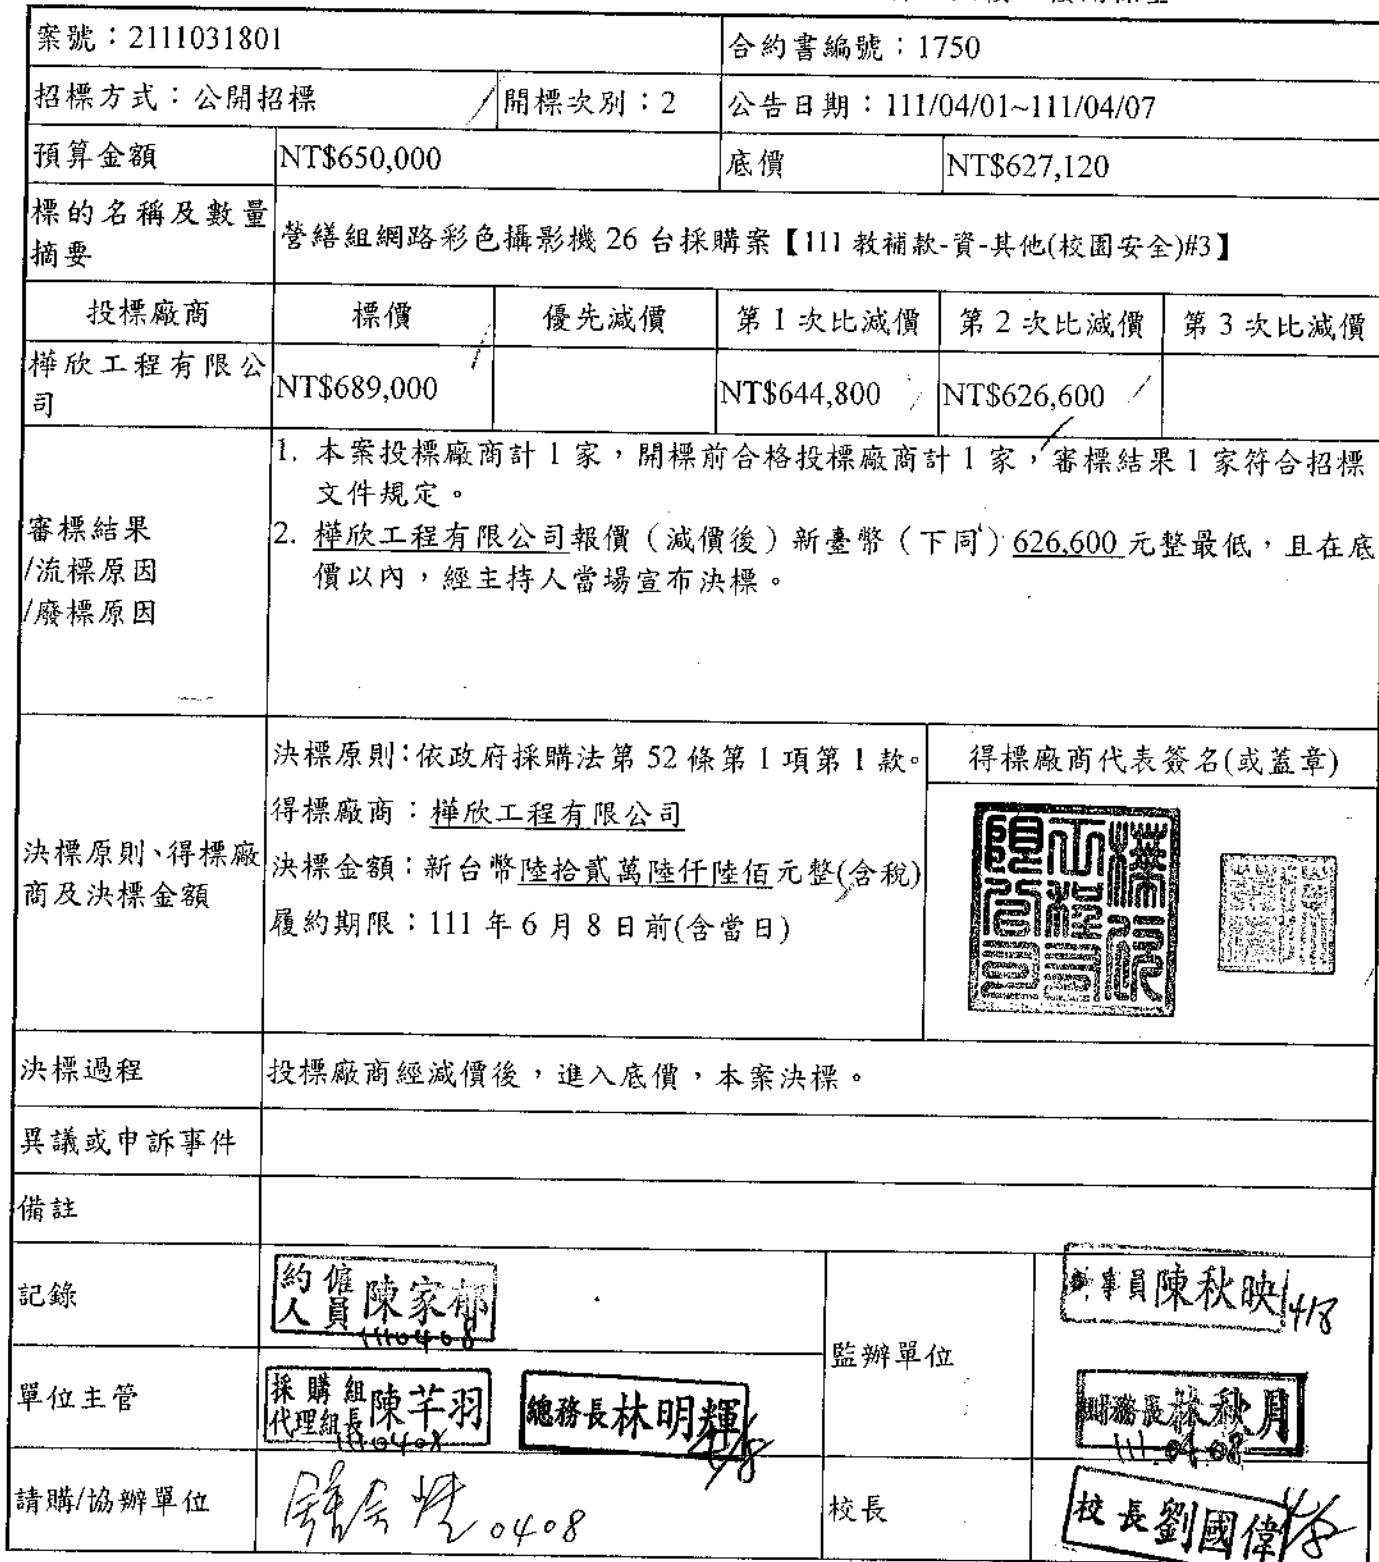 案號：2111031801
合約書編號：1750
招標方式：公開招標
開標次別：2
公告日期：111/04/01~111/04/07
預算金額
NT$650,000
底價
NT$627,120
標的名稱及數量
摘要
營繕組網路彩色攝影機 26 台採購案【111 教補款-資-其他(校園安全)#3】
投標廠商
標價
優先減價
第 1 次比減價
第 2 次比減價
第 3 次比減價
樺欣工程有限公
司
NT$689,000
NT$644,800
NT$626,600
審標結果
/流標原因
/廢標原因
1. 本案投標廠商計 1 家，開標前合格投標廠商計 1 家，審標結果 1 家符合招標
文件規定。
2. 樺欣工程有限公司報價（減價後）新臺幣（下同）626,600 元整最低，且在底
價以內，經主持人當場宣布決標。
決標原則、得標廠
商及決標金額
決標原則:依政府採購法第 52 條第 1 項第 1 款。
得標廠商：樺欣工程有限公司
決標金額：新台幣陸拾貳萬陸仟陸佰元整(含稅)
履約期限：111 年 6 月 8 日前(含當日)
得標廠商代表簽名(或蓋章)
決標過程
投標廠商經減價後，進入底價，本案決標。
異議或申訴事件
備註
記錄
約僱
人員 陳家郁
1110408
監辦單位
辦事員陳秋映
4/8
單位主管
採購組
代理組長 陳芊羽
1110408
總務長林明輝
4/8
財務長林秋月
111.04.08
請購/協辦單位
0408
校長
校長劉國偉
4/8